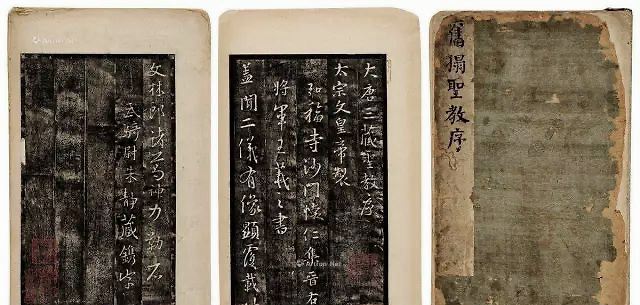 舊搨聖教序
大唐三藏聖教序
太宗文皇帝製
弘福寺沙門懷仁集晉右
將軍王羲之書
蓋聞二儀有像顯覆載
文林郎諸葛神力勒石
武騎尉朱靜藏鐫字